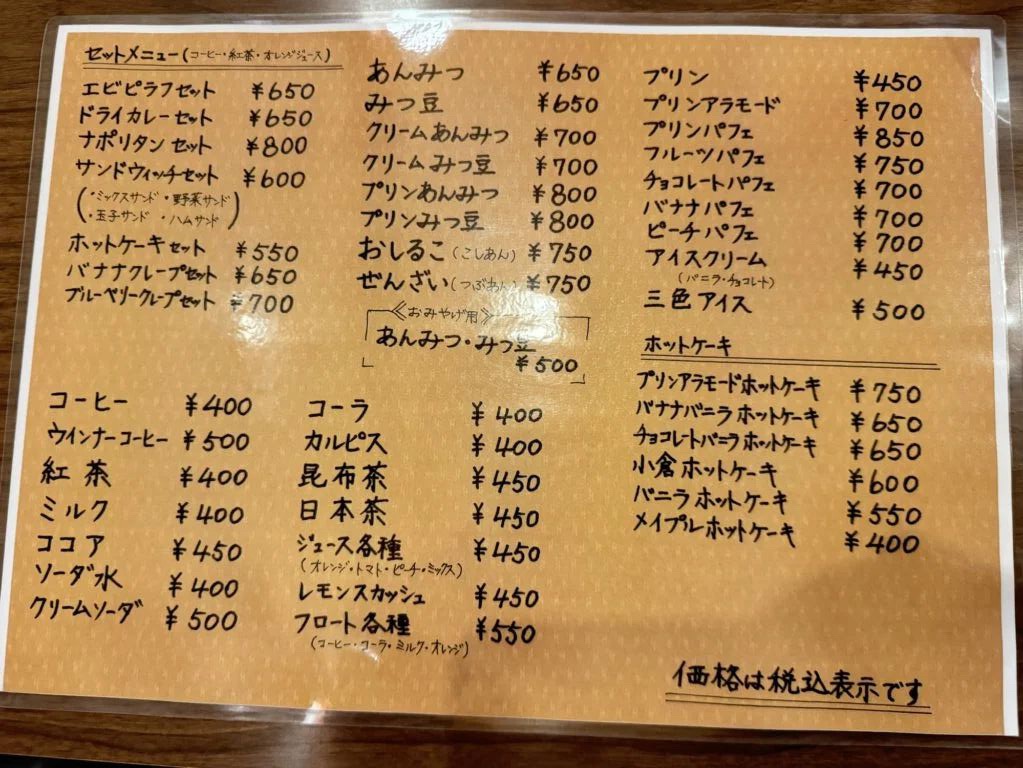 セットメニュー(コーヒー・紅茶・オレンジジュース)
エビピラフセット ¥650
ドライカレーセット ¥650
ナポリタンセット ¥800
サンドウィッチセット ¥600
(・ミックスサンド・野菜サンド
・玉子サンド・ハムサンド)
ホットケーキセット ¥550
バナナクレープセット ¥650
ブルーベリークレープセット ¥700
あんみつ ¥650
みつ豆 ¥650
クリームあんみつ ¥700
クリームみつ豆 ¥700
プリンあんみつ ¥800
プリンみつ豆 ¥800
おしるこ(こしあん) ¥750
ぜんざい(つぶあん) ¥750
《おみやげ用》
あんみつ・みつ豆
¥500
プリン ¥450
プリンアラモード ¥700
プリンパフェ ¥850
フルーツパフェ ¥750
チョコレートパフェ ¥700
バナナパフェ ¥700
ピーチパフェ ¥700
アイスクリーム ¥450
(バニラ・チョコレート)
三色アイス ¥500
ホットケーキ
プリンアラモードホットケーキ ¥750
バナナバニラホットケーキ ¥650
チョコレートバニラホットケーキ ¥650
小倉ホットケーキ ¥600
バニラホットケーキ ¥550
メイプルホットケーキ ¥400
コーヒー ¥400
ウインナーコーヒー ¥500
紅茶 ¥400
ミルク ¥400
ココア ¥450
ソーダ水 ¥400
クリームソーダ ¥500
コーラ ¥400
カルピス ¥400
昆布茶 ¥450
日本茶 ¥450
ジュース各種 ¥450
(オレンジ・トマト・ピーチ・ミックス)
レモンスカッシュ ¥450
フロート各種 ¥550
(コーヒー・コーラ・ミルク・オレンジ)
価格は税込表示です